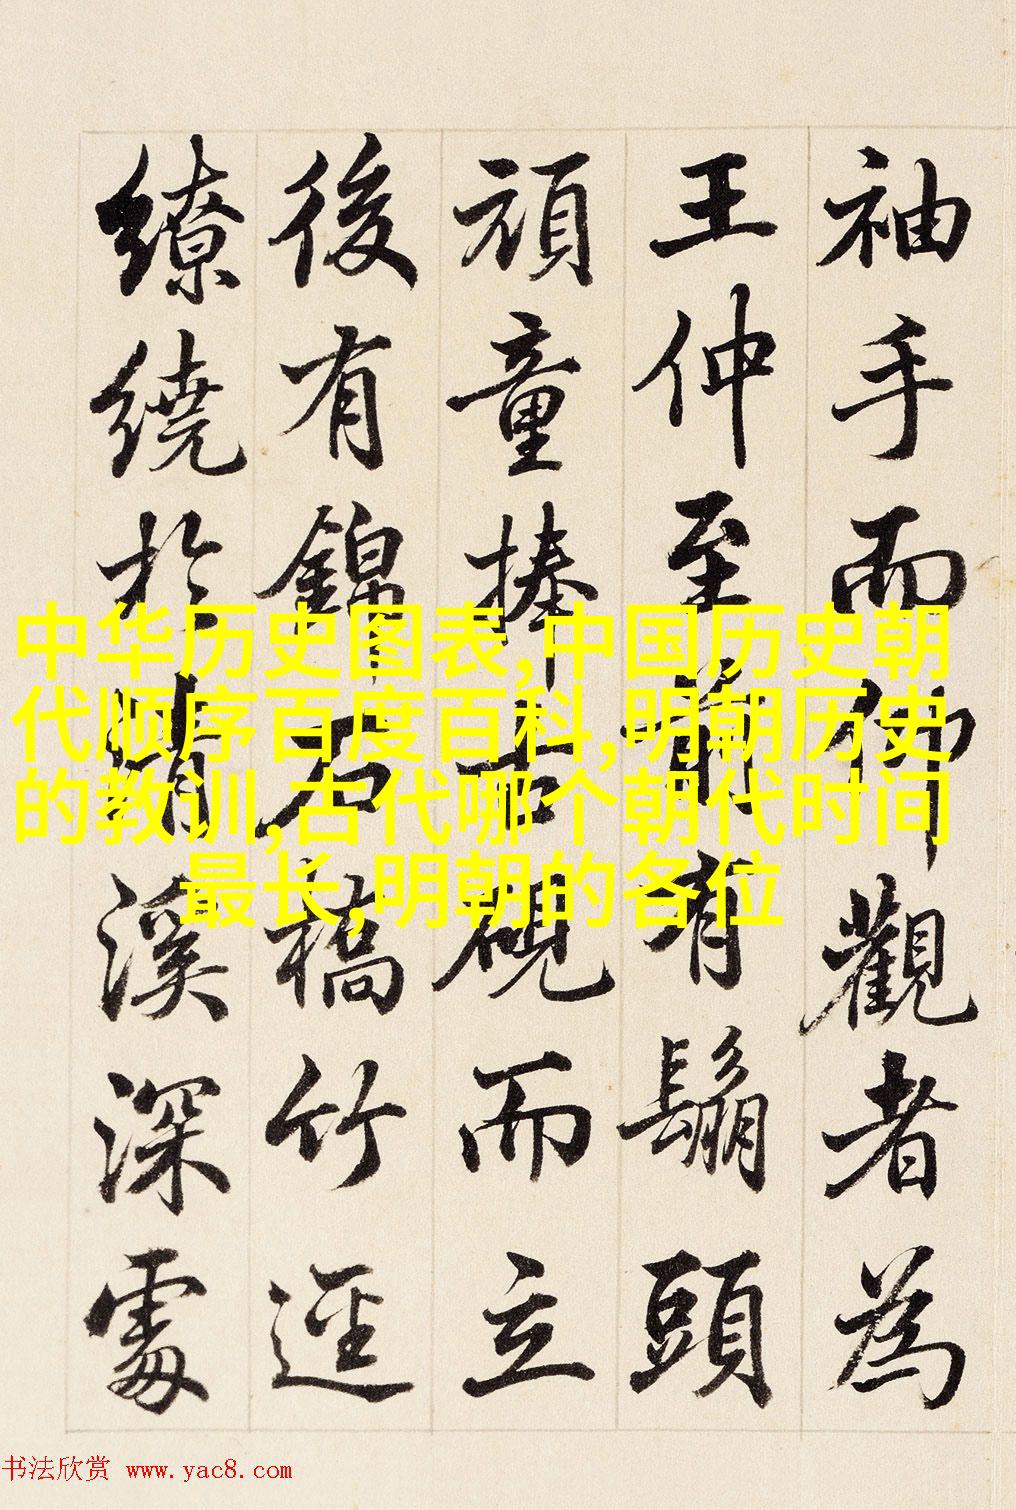 袖手而仰觀者為
王仲至前有鬅頭
頑童捧古硯而立
後有錦石橋竹逕
繚繞於清溪深處
中华历史图表,中国历史朝
代顺序百度百科,明朝历史
的教训,古代哪个朝代时间
最长,明朝的各位
书法欣赏 www.yac8.com